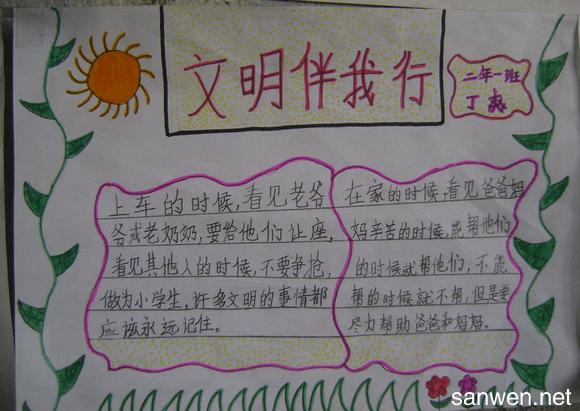 文明伴我行
二年一班
丁
上车的时候,看见老爷
爷或老奶奶,要给他们让座,
看见其他人的时候,不要争抢,
做为小学生,许多文明的事情都
应该永远记住。
在家的时候,看见爸爸妈
妈辛苦的时候,能帮他们
的时候就帮他们,不能
帮的时候就不帮,但是要
尽力帮助爸爸和妈妈。
sanwen.net